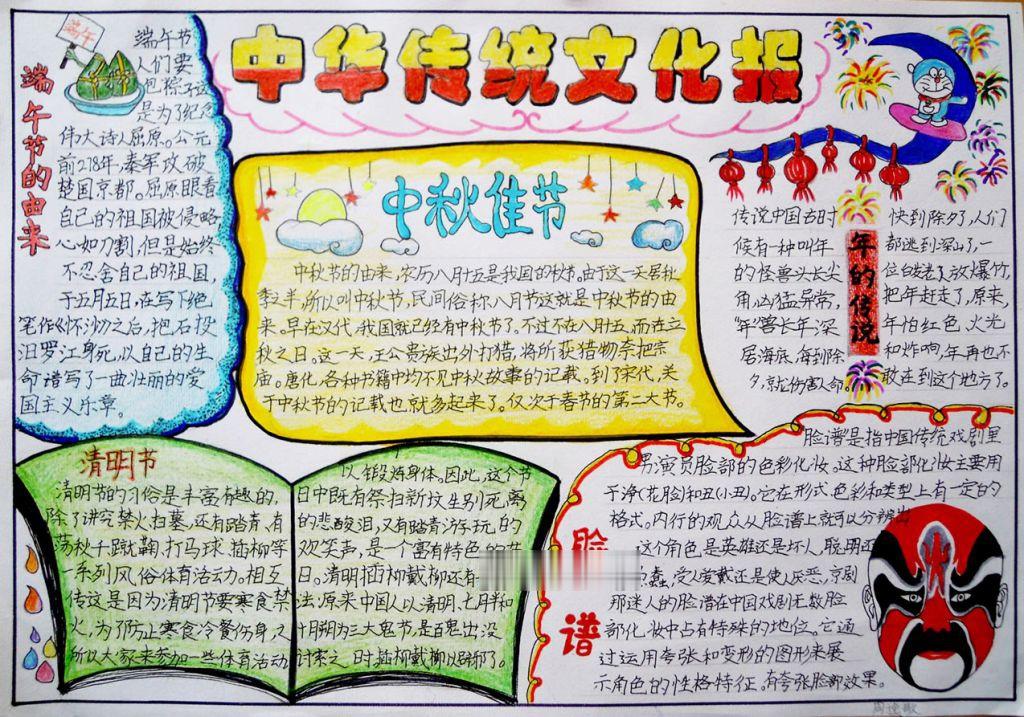 中华传统文化报
端午
端午节的由来
端午节
人们要
包粽子这
是为了纪念
伟大诗人屈原。公元
前278年,秦军攻破
楚国京都。屈原眼看
自己的祖国被侵略
心如刀割,但是始终
不忍舍自己的祖国,
于五月五日,在写下绝
笔作《怀沙》之后,抱石投
汨罗江身死,以自己的生
命谱写了一曲壮丽的爱
国主义乐章。
中秋佳节
中秋节的由来,农历八月十五是我国的秋节。由于这一天居秋
季之半,所以叫中秋节,民间俗称八月节这就是中秋节的由
来。早在汉代,我国就已经有中秋节了。不过不在八月十五,而在立
秋之日。这一天,王公贵族出外打猎,将所获猎物奈把宗
庙。唐化,各种书籍中均不见中秋故事的记载。到了宋代,关
于中秋节的记载也就多起来了。仅次于春节的第二大节。
年的传说
传说中国古时
候有一种叫年
的怪兽头长尖
角,凶猛异常,
"年"兽长年深
居海底,每到除
夕,就伤害人命。
快到除夕了,人们
都逃到深山了,一
位白发老人放爆竹,
把年赶走了,原来,
年怕红色、火光
和炸响,年再也不
敢在到这个地方了。
清明节
清明节的习俗是丰富有趣的,
除了讲究禁火扫墓,还有踏青,荡
荡秋千,蹴鞠,打马球,插柳等
系列风俗体育活动。相互
传这是因为清明节要寒食禁
火,为了防止寒食冷餐伤身,又
所以大家来参加一些体育活动
以锻炼身体。因此,这个节
日中既有祭扫新坟生别死离
的悲酸泪,又有踏青游玩,的
欢笑声,是一个富有特色的节
日。清明插柳戴柳还有
法:原来中国人以清明、七月半和
十月朔为三大鬼节,是百鬼出没
讨索之时插柳戴柳以辟邪了。
脸谱
脸谱"是指中国传统戏剧里
男演员脸部的色彩化妆。这种脸部化妆主要用
于净(花脸)和丑(小丑)。它在形式,色彩和类型上有一定的
格式。内行的观众从脸谱上就可以分辨出
这个角色,是英雄还是坏人,聪明还
蠢,受人爱戴还是使人厌恶,京剧
那迷人的脸谱在中国戏剧无数脸
部化妆中占有特殊的地位。它通
过运用夸张和变形的图形来展
示角色的性格特征。有夸张脸部效果。